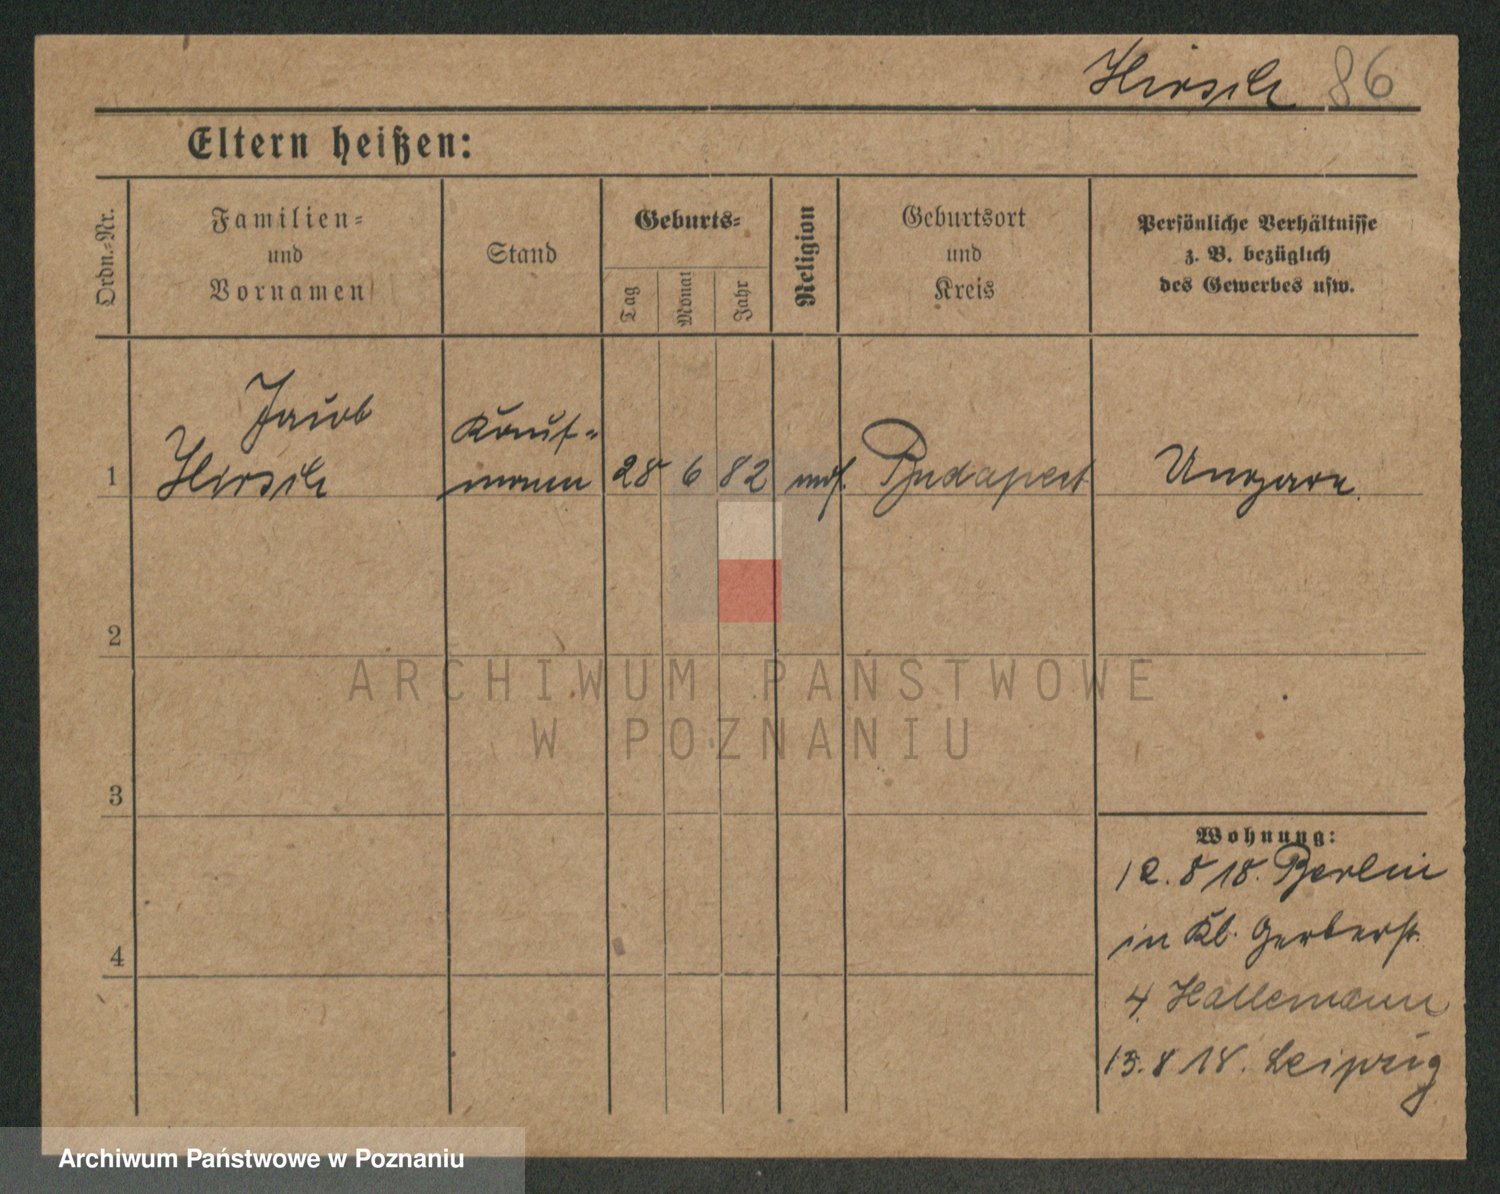 Hirsch 86
Eltern heißen:
Ordn.-Nr.
Familien-
und
Vornamen
Stand
Geburts-
Tag
Monat
Jahr
Religion
Geburtsort
und
Kreis
Persönliche Verhältnisse
z. B. bezüglich
des Gewerbes usw.
Jacob
Hirsch
Kauf-
mann
1
28 6 82
mos.
Budapest
Ungarn
2
3
4
Wohnung:
12. 8 18. Berlin
in Kl. Gerberstr.
4. Hallemann
13. 8 18. Leipzig
ARCHIWUM PAŃSTWOWE
W POZNANIU
Archiwum Państwowe w Poznaniu